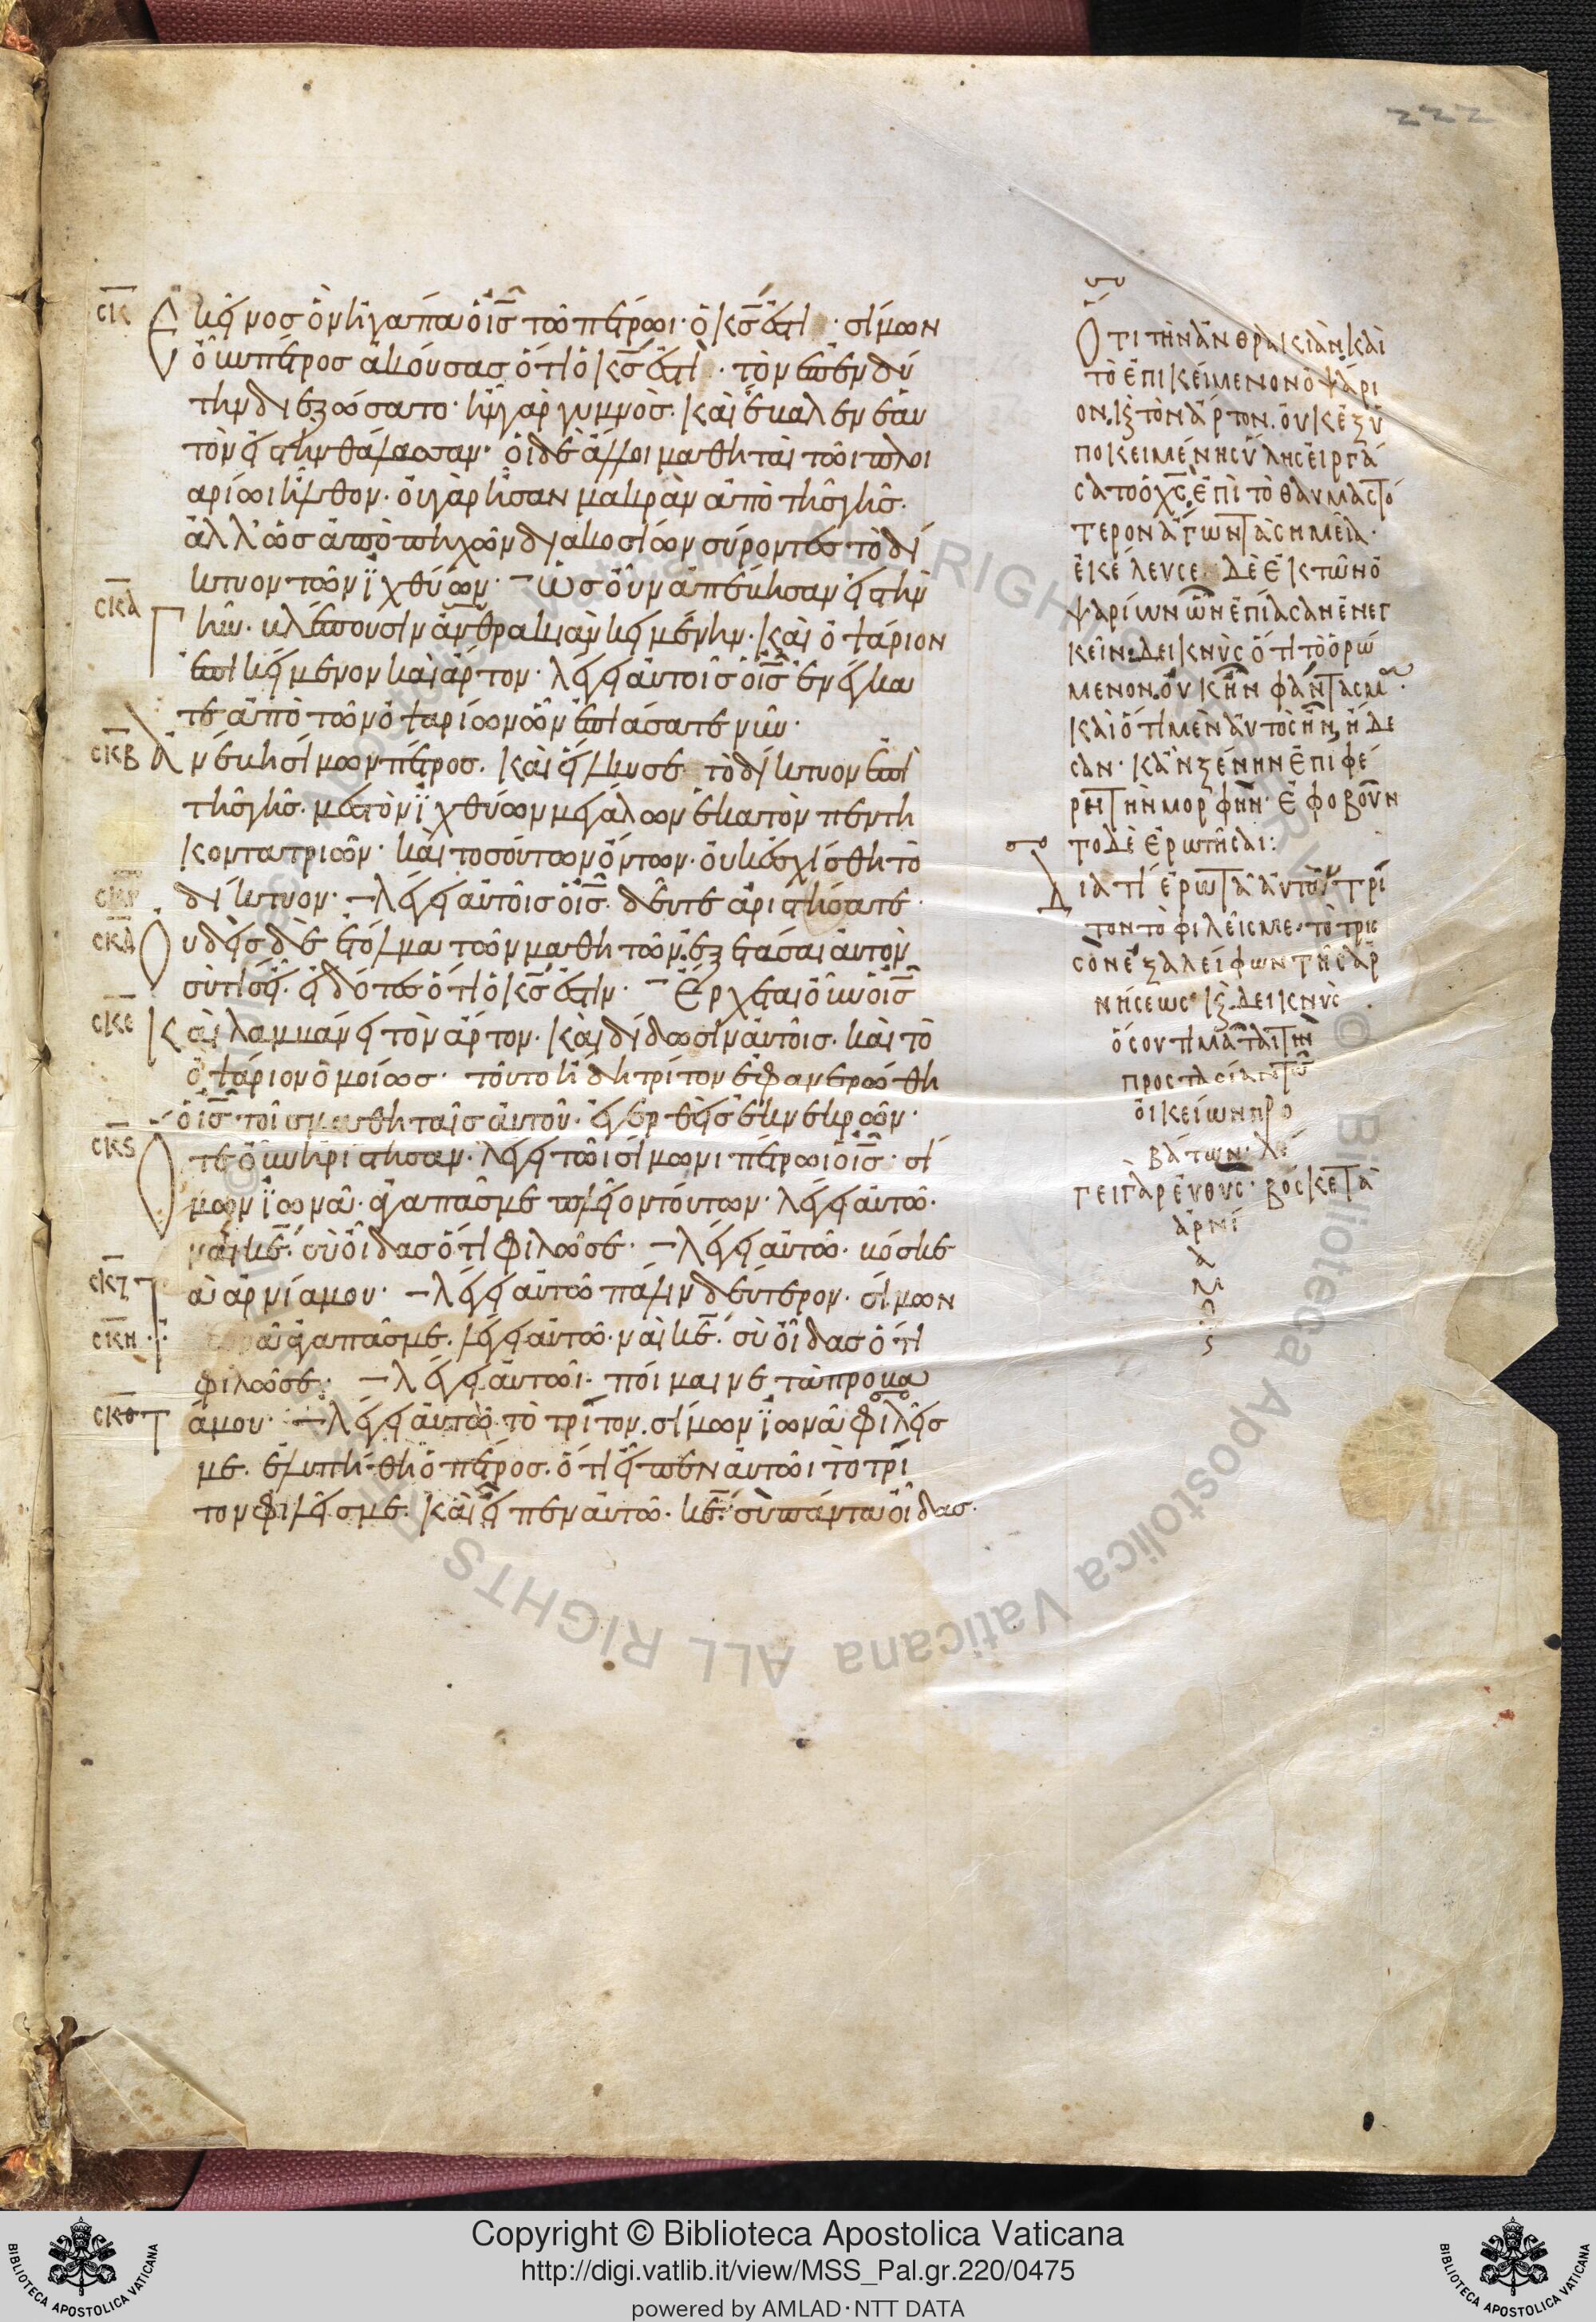 222
σ̅κ̅
Ἐκεῖνος ὃν ἠγάπα ὁ ι̅ς̅ τῶ πέτρωι· ὁ κ̅ς̅ ἐστι · σίμων
ὁῦν πέτρος ἀκούσας ὅτι ὁ κ̅ς̅ ἐστὶ · τὸν ἐπενδύ
την διεζώσατο· ἦν γὰρ γυμνὸς· καὶ ἔβαλεν ἑαυ
τὸν εἰς τὴν θάλασσαν· οἱ δὲ ἄλλοι μαθηταὶ τῶι πλοι
αρίωι ἦλθον· οὐ γὰρ ἦσαν μακρὰν ἀπὸ τῆς γῆς·
ἀλλ' ὡς ἀπὸ πηχῶν διακοσίων σύροντες τὸ δί
κτυον τῶν ϊχθύων· ὡς οὖν ἀπέβησαν εἰς τὴν
σ̅κ̅α̅
γῆν· βλέπουσιν ἀνθρακιὰν κειμένην· καὶ ὀψάριον
ἐπικείμενον καὶ ἄρτον· λέγει αὐτοῖς ὁ ι̅ς̅ ἐνέγκα
τε ἀπὸ τῶν ὀψαρίων ὧν ἐπιάσατε νῦν·
σ̅κ̅β̅
ἀνέβη σίμων πέτρος· καὶ εἵλκυσε τὸ δίκτυον ἐπὶ
τῆς γῆς· μεστὸν ϊχθύων μεγάλων ἑκατὸν πεντη
κοντατριῶν· καὶ τοσούτων ὄντων· οὐκ ἐσχίσθη τὸ
σ̅κ̅γ̅
δίκτυον· λέγει αὐτοῖς ὁ ι̅ς̅· δεῦτε ἀριστήσατε·
σ̅κ̅δ̅
Οὐδεὶς δὲ ἐτόλμα τῶν μαθητῶν ἐξετάσαι αὐτὸν
σὺ τίς εἶ· εἰδότες ὅτι ὁ κ̅ς̅ ἐστιν· Ἔρχεται οὖν ὁ ι̅ς̅
σ̅κ̅ε̅
Καὶ λαμβάνει τὸν ἄρτον· καὶ δίδωσιν αὐτοῖς· καὶ τὸ
ὀψάριον ὁμοίως· τοῦτο ἤδη τρίτον ἐφανερώθη
ὁ ι̅ς̅· τοῖς μαθηταῖς αὐτοῦ· ἐγερθεὶς ἐκ νεκρῶν·
σ̅κ̅ς̅
Ὅτε οὖν ἠρίστησαν· λέγει τῶι σίμωνι πέτρωι ὁ ι̅ς̅· σί
μων ϊωνᾶ· ἀγαπᾶς με πλεῖον τούτων· λέγει αὐτῶ·
ναὶ κ̅ε̅· σὺ οἶδας ὅτι φιλῶ σε· λέγει αὐτῶ· βόσκε
σ̅κ̅ζ̅
τὰ ἀρνία μου· λέγει αὐτῶ πάλιν δεύτερον· σίμων
σ̅κ̅η̅
ϊωνᾶ ἀγαπᾶς με· λέγει αὐτῶ· ναὶ κ̅ε̅· σὺ οἶδας ὅτι
φιλῶ σε· λέγει αὐτῶι· ποίμαινε τὰ προβα
σ̅κ̅θ̅
τά μου· λέγει αὐτῶ τὸ τρίτον· σίμων ϊωνᾶ φιλεῖς
με· ἐλυπήθη ὁ πέτρος· ὅτι εἶπεν αὐτῶι τὸ τρί
τον φιλεῖς με· καὶ εἶπεν αὐτῶ· κ̅ε̅· σὺ πάντα οἶδας·
Ὅτι τὴν ἀνθρακιὰν καὶ
τὸ ἐπικείμενον ὀψάρι
ον· κ̀ τὸν ἄρτον· οὐκ ἐξ ὑ
ποκειμένης ὕλης εἰργά
σατο ὁ χ̅ς̅· ἐπὶ τὸ θαυμαστό
τερον ἄγων τὰ σημεῖα·
ἐκέλευσε δὲ ἐκ τῶν ὀ
ψαρίων ὧν ἐπίασαν ἐνεγ
κεῖν· δεικνὺς ὅτι τὸ ὁρώ
μενον· οὐκ ἦν φάντασμα·
καὶ ὅτι μὲν αὐτὸς ἦν, ἤδε
σαν· κἂν ξένην ἐπιφέ
ρει τὴν μορφήν· ἐφοβοῦν
το δὲ ἐρωτῆσαι:
Διατί ἐρωτᾶ αὐτὸν τρί
τον τὸ φιλεῖς με· τὸ τρισ
σὸν ἐξαλείφων τῆς ἀρ
νήσεως· κ̀ δεικνὺς
ὅσου τιμᾶται τὴν
προστασίαν τῶν
οἰκείων προ
βάτων· λέ
γει γὰρ εὐθύς· βόσκε τὰ
ἀρνί
α
μ
ο
υ
Copyright © Biblioteca Apostolica Vaticana
http://digi.vatlib.it/view/MSS_Pal.gr.220/0475
powered by AMLAD·NTT DATA
BIBLIOTECA APOSTOLICA VATICANA
BIBLIOTECA APOSTOLICA VATICANA